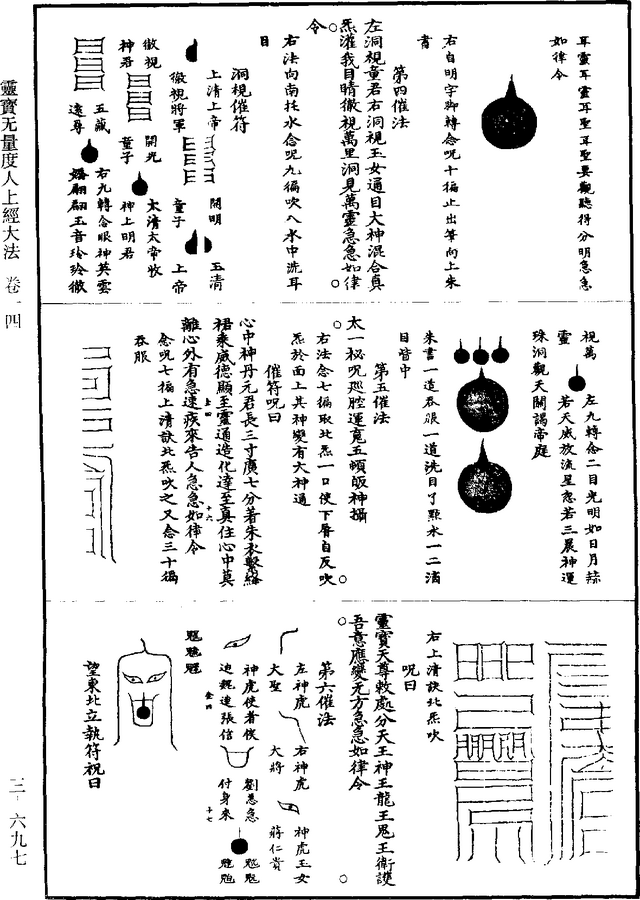 耳靈耳靈耳聖耳聖要觀聽得分明急急
如律令
右自明字脚轉念呪十徧止出筆向上朱
書
第四催法
左洞視童君右洞視玉女通目大神混合真
炁灌我目睛徹視萬里洞見萬靈急急如律
令
右法向南托水念呪九徧吹入水中洗耳
目
洞視催符
上清上帝
徹視將軍
開明
童子
玉清
上帝
徹視
神君
開光
童子
太清太帝收
神上明君
五藏
遠尋
右九轉念眼神英雲
嬌翩翩玉音玲玲徹
視萬
靈
左九轉念二目光明如日月蒜
若天威放流星忽若三晨神運
珠洞觀天開謁帝庭
朱書一道吞服一道洗目了點水一二滴
目眥中
第五催法
太一秘呪巡腔運寬五頓皈神攝
右法念七徧取北炁一口使下唇自反吹
炁於面上其神變有大神通
催符呪曰
心中神丹元君長三寸廣七分著朱衣繫絳
裙乘威德顯至靈通造化達至真住心中莫
離心外有急速疾來告人急急如律令
念呪七徧上清訣北炁吹之又念三十徧
吞服
右上清訣北炁吹
呪曰
靈寶天尊敕處分天王神王龍王鬼王衛護
吾意應變无方急急如律令
第六催法
左神虎
大聖
右神虎
大將
神虎玉女
蔣仁貴
神虎使者侯
迪魏達張信
劉悉急
付身來
望東北立執符祝曰
靈寶无量度人上經大法 卷一四
三-六九七